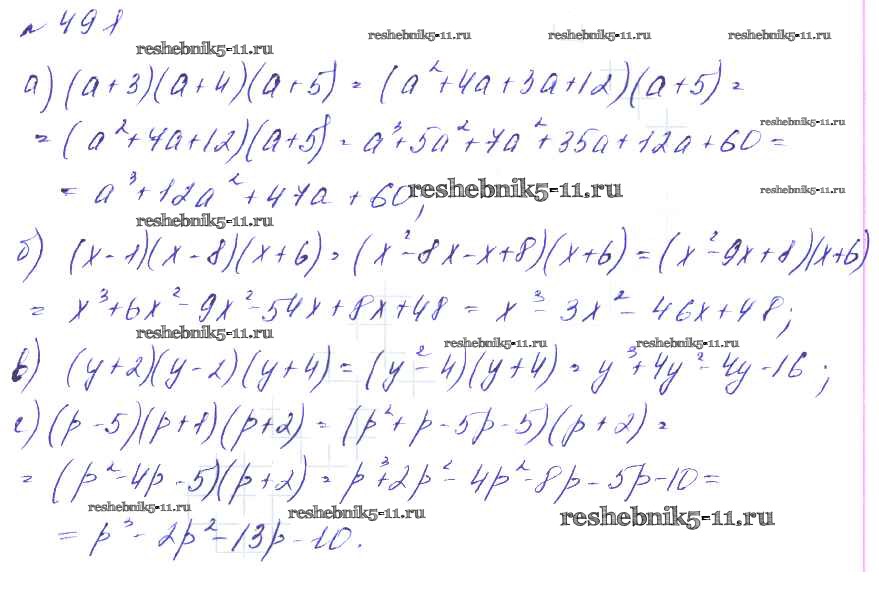 № 498
reshebnik5-11.ru reshebnik5-11.ru reshebnik5-11.ru
а) (a+3)(a+4)(a+5) = (a²+4a+3a+12)(a+5) =
reshebnik5-11.ru
= (a²+7a+12)(a+5) = a³+5a²+7a²+35a+12a+60 =
= a³+12a²+47a+60; reshebnik5-11.ru reshebnik5-11.ru
reshebnik5-11.ru
б) (x-1)(x-8)(x+6) = (x²-8x-x+8)(x+6) = (x²-9x+8)(x+6)
= x³+6x²-9x²-54x+8x+48 = x³-3x²-46x+48;
reshebnik5-11.ru reshebnik5-11.ru reshebnik5-11.ru
в) (y+2)(y-2)(y+4) = (y²-4)(y+4) = y³+4y²-4y-16;
г) (p-5)(p+1)(p+2) = (p²+p-5p-5)(p+2) =
= (p²-4p-5)(p+2) = p³+2p²-4p²-8p-5p-10 =
reshebnik5-11.ru reshebnik5-11.ru reshebnik5-11.ru
= p³-2p²-13p-10.